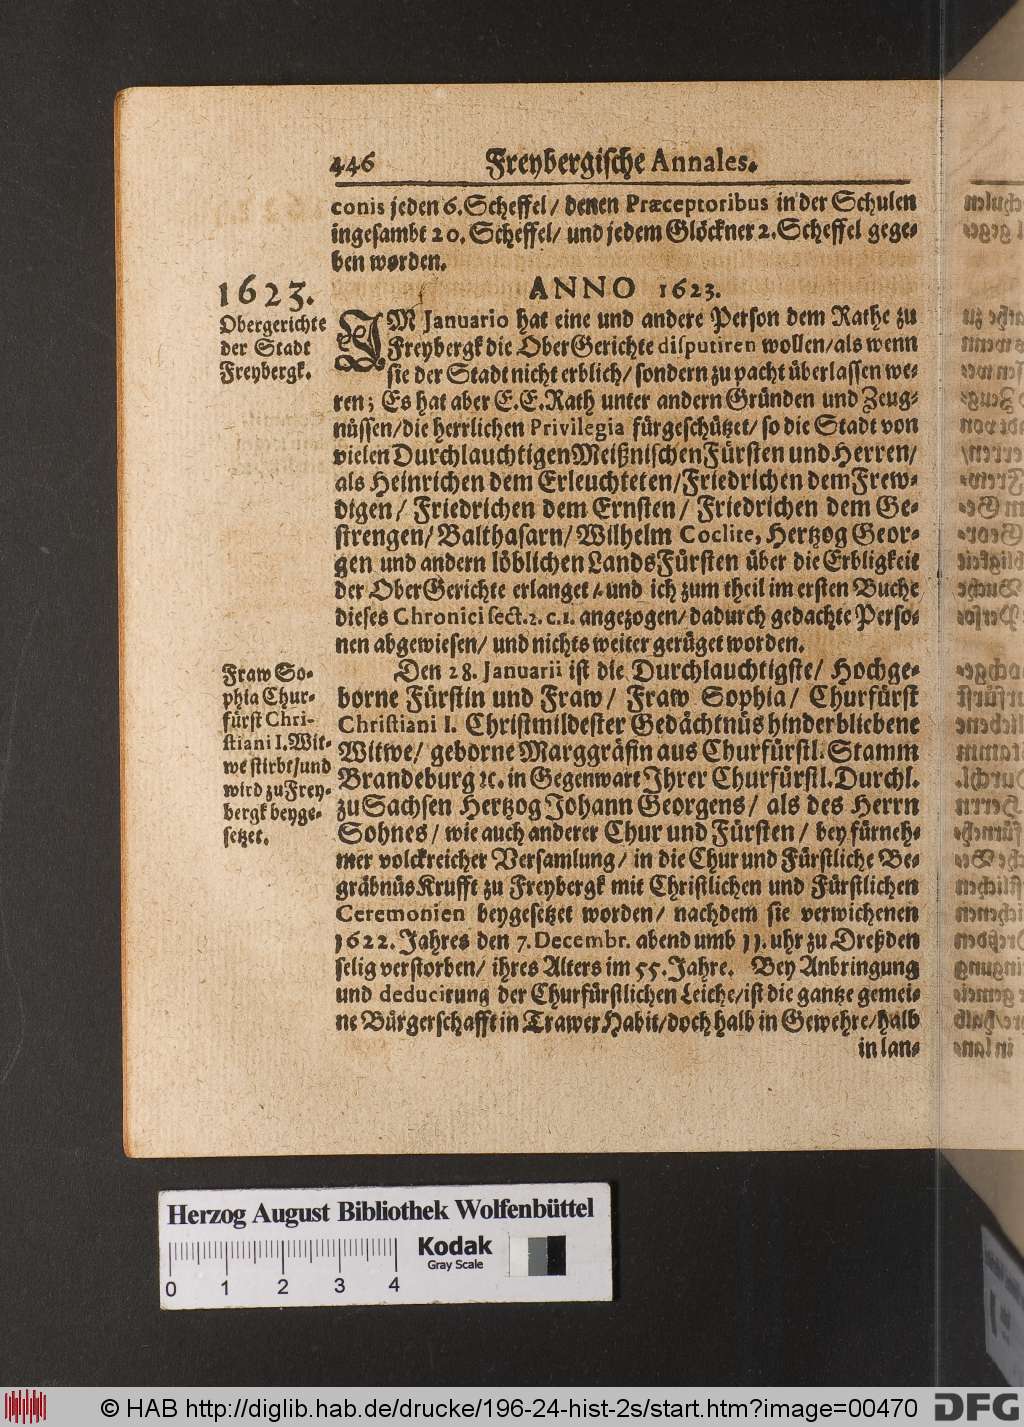 446 Freybergische Annales.
conis jeden 6. Scheffel/ denen Præceptoribus in der Schulen
ingesambt 20. Scheffel/ und jedem Glöckner 2. Scheffel gege-
ben worden.
1623.
Obergerichte
der Stadt
Freybergk.
ANNO 1623.
IM Januario hat eine und andere Person dem Rathe zu
Freybergk die OberGerichte disputiren wollen/ als wenn
sie der Stadt nicht erblich/ sondern zu pacht überlassen we-
ren; Es hat aber E. E. Rath unter andern Gründen und Zeug-
nüssen/ die herrlichen Privilegia fürgeschützet/ so die Stadt von
vielen Durchlauchtigen Meißnischen Fürsten und Herren/
als Heinrichen dem Erleuchteten/ Friedrichen dem Frew-
digen/ Friedrichen dem Ernsten/ Friedrichen dem Ge-
strengen/ Balthasarn/ Wilhelm Coclite, Hertzog Geor-
gen und andern löblichen LandsFürsten über die Erbligkeit
der OberGerichte erlanget/ und ich zum theil im ersten Buche
dieses Chronici sect. 2. c. 1. angezogen/ dadurch gedachte Perso-
nen abgewiesen/ und nichts weiter gerüget worden.
Fraw So-
phia Chur-
fürst Chri-
stiani I. Wit-
we stirbt/ und
wird zu Frey-
bergk beyge-
setzet.
Den 28. Januarii ist die Durchlauchtigste/ Hochge-
borne Fürstin und Fraw/ Fraw Sophia/ Churfürst
Christiani I. Christmildester Gedächtnüs hinderbliebene
Witwe/ geborne Marggräfin aus Churfürstl. Stamm
Brandeburg ꝛc. in Gegenwart Ihrer Churfürstl. Durchl.
zu Sachsen Hertzog Johann Georgens/ als des Herrn
Sohnes/ wie auch anderer Chur und Fürsten/ bey fürneh-
mer volckreicher Versamlung/ in die Chur und Fürstliche Be-
gräbnüs Krufft zu Freybergk mit Christlichen und Fürstlichen
Ceremonien beygesetzet worden/ nachdem sie verwichenen
1622. Jahres den 7. Decembr. abend umb 11. uhr zu Dreßden
selig verstorben/ ihres Alters im 55. Jahre. Bey Anbringung
und deducirung der Churfürstlichen Leiche/ ist die gantze gemei-
ne Bürgerschafft in Trawer Habit/ doch halb in Gewehre/ halb
in lan-
Herzog August Bibliothek Wolfenbüttel
Kodak
Gray Scale
0 1 2 3 4
© HAB http://diglib.hab.de/drucke/196-24-hist-2s/start.htm?image=00470
DFG